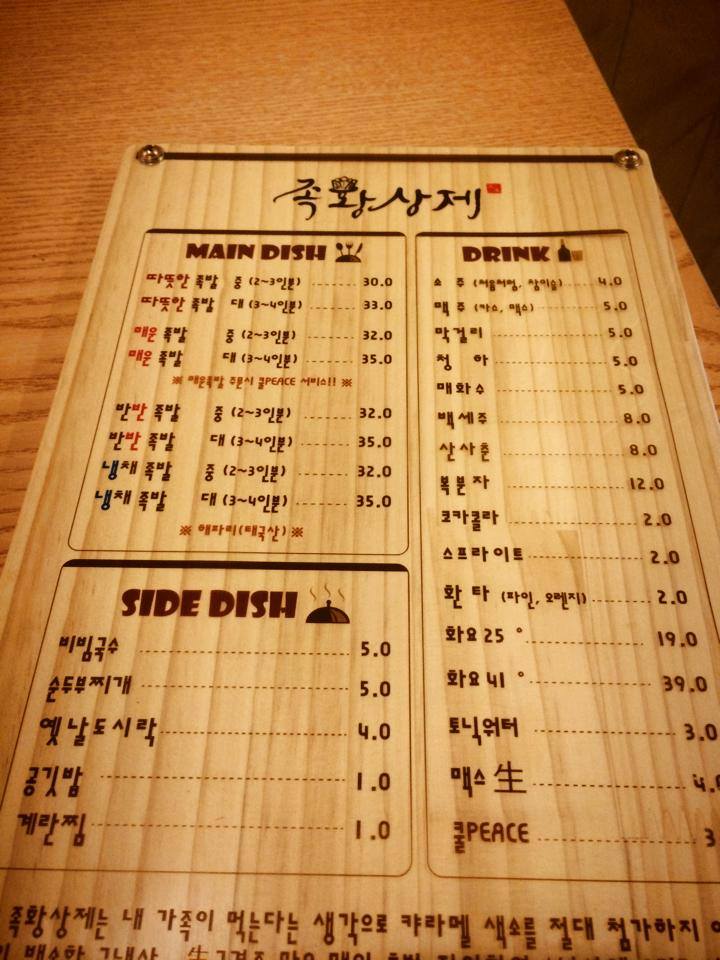 족황상제
MAIN DISH
따뜻한 족발 중 (2~3인분) 30.0
따뜻한 족발 대 (3~4인분) 33.0
매운 족발 중 (2~3인분) 32.0
매운 족발 대 (3~4인분) 35.0
※ 매운족발 주문시 쿨PEACE 서비스!! ※
반반 족발 중 (2~3인분) 32.0
반반 족발 대 (3~4인분) 35.0
냉채 족발 중 (2~3인분) 32.0
냉채 족발 대 (3~4인분) 35.0
※ 해파리(태국산) ※
SIDE DISH
비빔국수 5.0
순두부찌개 5.0
옛날도시락 4.0
공깃밥 1.0
계란찜 1.0
DRINK
소 주 (처음처럼, 참이슬) 4.0
맥 주 (카스, 맥스) 5.0
막걸리 5.0
청 하 5.0
매화수 5.0
백세주 8.0
산사춘 8.0
복분자 12.0
코카콜라 2.0
스프라이트 2.0
환타 (파인, 오렌지) 2.0
화요 25 ° 19.0
화요 41 ° 39.0
토닉워터 3.0
맥스 生 4.
쿨PEACE 3
족황상제는 내 가족이 먹는다는 생각으로 캬라멜 색소를 절대 첨가하지